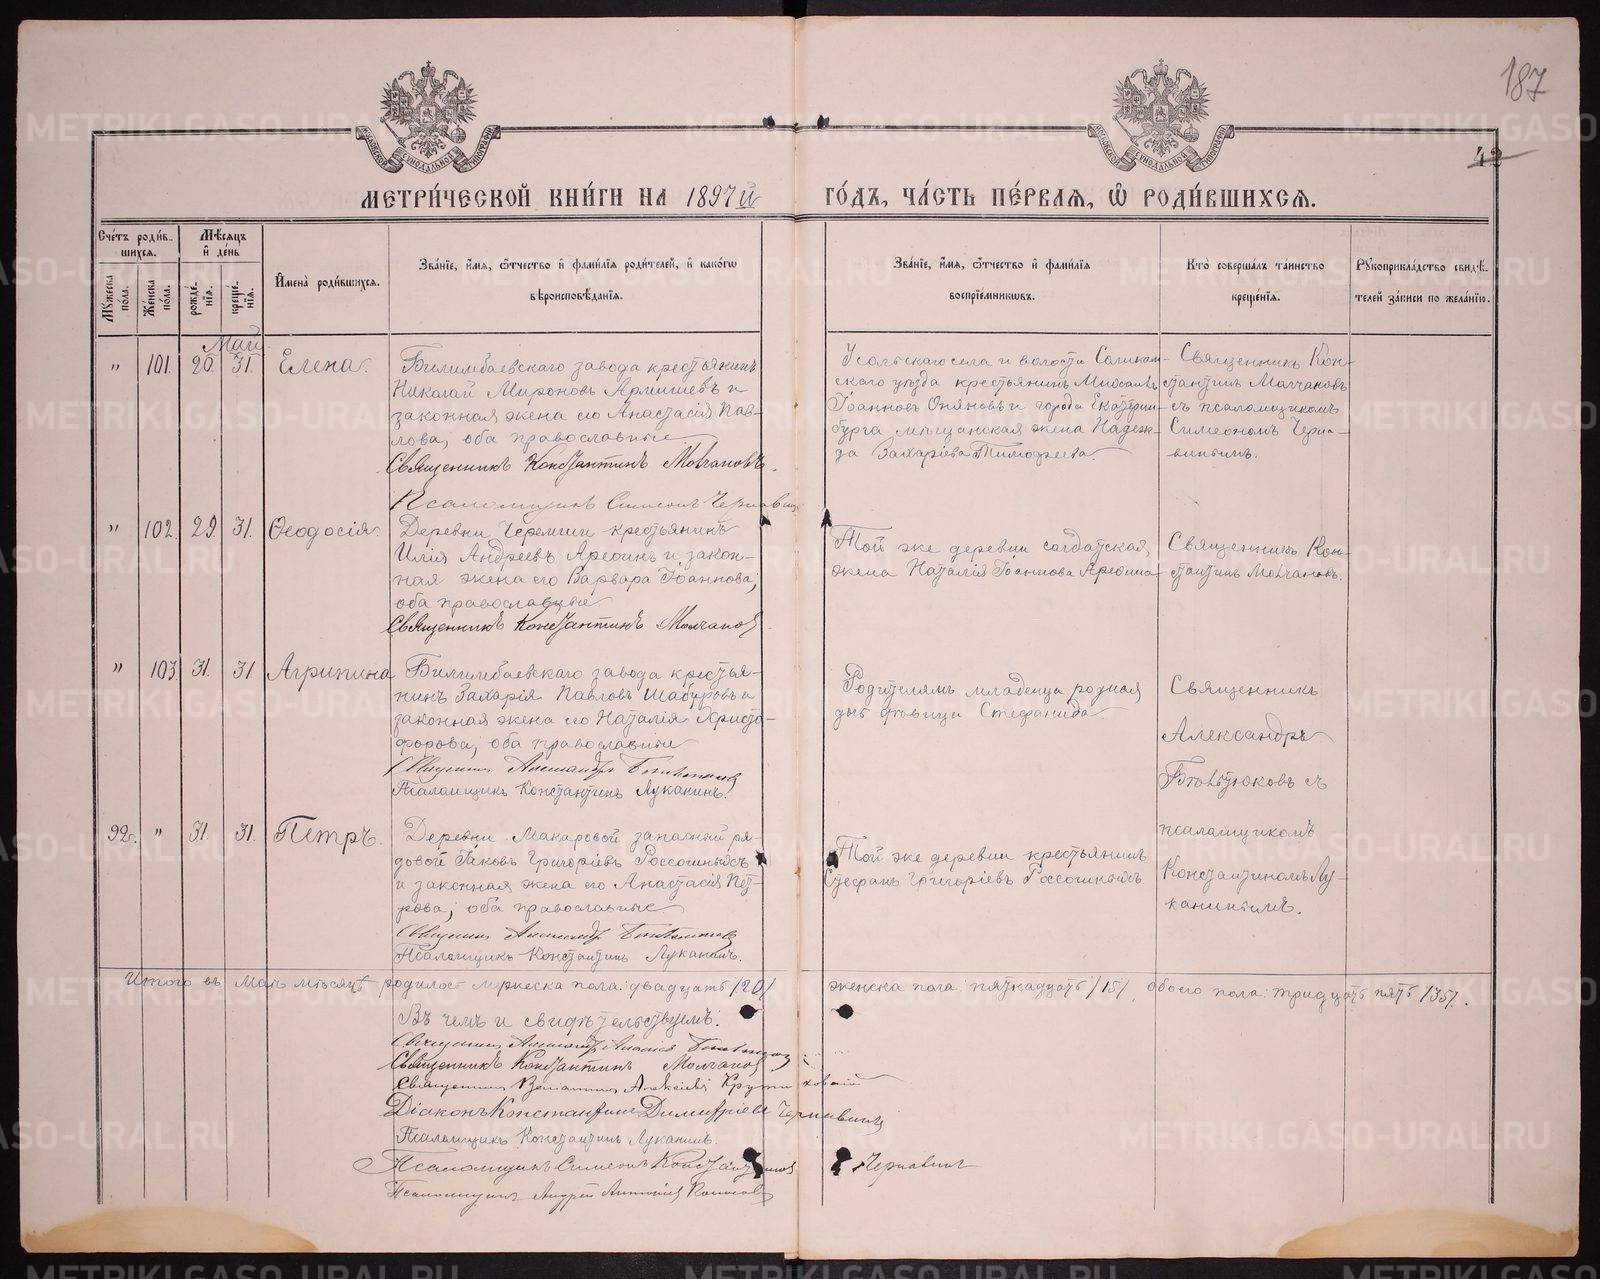 187
42
МЕТРИ́ЧЕСКОЙ КНИ́ГИ НА 1897й ГО́ДЪ, ЧА́СТЬ ПЕ́РВАЯ, Ѡ РОДИ́ВШИХСЯ.
Сче́тъ роди́вшихся.
Мꙋжеска по́ла.
Же́нска по́ла.
Мѣ́сяцъ и де́нь
рожде́нїя.
креще́нїя.
Имена̀ роди́вшихся.
Зва́нїе, и́мя, ѻ́тчество и фами́лїя роди́телей, и како́гѡ
вѣроисповѣ́данїя.
Зва́нїе, и́мя, ѻ́тчество и фами́лїя
воспрїе́мникѡвъ.
Кто̀ соверша́лъ та́инство
креще́нїя.
Рꙋкоприкла́дство свидѣ́телей за́писи по жела́нїю.
Май
" 101. 20. 31. Елена.
Билимбаевскаго завода крестьянинъ
Николай Мироновъ и
законная жена его Анастасія Пав-
лова, оба православные
Священникъ Константинъ Молчановъ.
Псаломщикъ Симеонъ Чернавинъ
Усольскаго села и волости Соликам-
скаго уѣзда крестьянинъ Михаилъ
Іоанновъ Оняновъ и города Екатерин-
бурга мѣщанская жена Надеж-
да Захаріева Тимофеева.
Священникъ Кон-
стантинъ Молчановъ
съ псаломщикомъ
Симеономъ Черна-
винымъ.
" 102. 29. 31. Ѳеодосія.
Деревни Черемши крестьянинъ
Илія Андреевъ Арефинъ и закон-
ная жена его Варвара Іоаннова;
оба православные
Священникъ Константинъ Молчановъ
Той же деревни солдатская
жена Наталія Іоаннова Арефина
Священникъ Кон-
стантинъ Молчановъ.
" 103. 31. 31. Агрипина
Билимбаевскаго завода крестья-
нинъ Захарія Павловъ Шабуровъ и
законная жена его Наталія Христо-
форова; оба православные
Священникъ Александръ
Псаломщикъ Константинъ Луканинъ.
Родителямъ младенца родная
дѣвица Стефанида
Священникъ
Александръ
съ
псаломщикомъ
Константиномъ Лу-
канинымъ.
92. " 31. 31. Петръ.
Деревни Макаровой запасный ря-
довой Іаковъ Григоріевъ Россогиныхъ
и законная жена его Анастасія Пет-
рова; оба православные
Священникъ Александръ
Псаломщикъ Константинъ Луканинъ.
Той же деревни крестьянинъ
Стефанъ Григоріевъ Россогиныхъ
Итого въ Маѣ мѣсяцѣ родилось мужеска пола: двадцать /20/ женска пола: пятнадцать /15/, обоего пола: тридцать пять /35/.
Въ чемъ и свидѣтельствуемъ:
Священникъ Александръ
Священникъ Константинъ Молчановъ
Священникъ Веніаминъ Алексіевъ
Діаконъ Константинъ Димитріевъ Чернавинъ
Псаломщикъ Константинъ Луканинъ.
Псаломщикъ Симеонъ Константиновъ Чернавинъ
Псаломщикъ Андрей